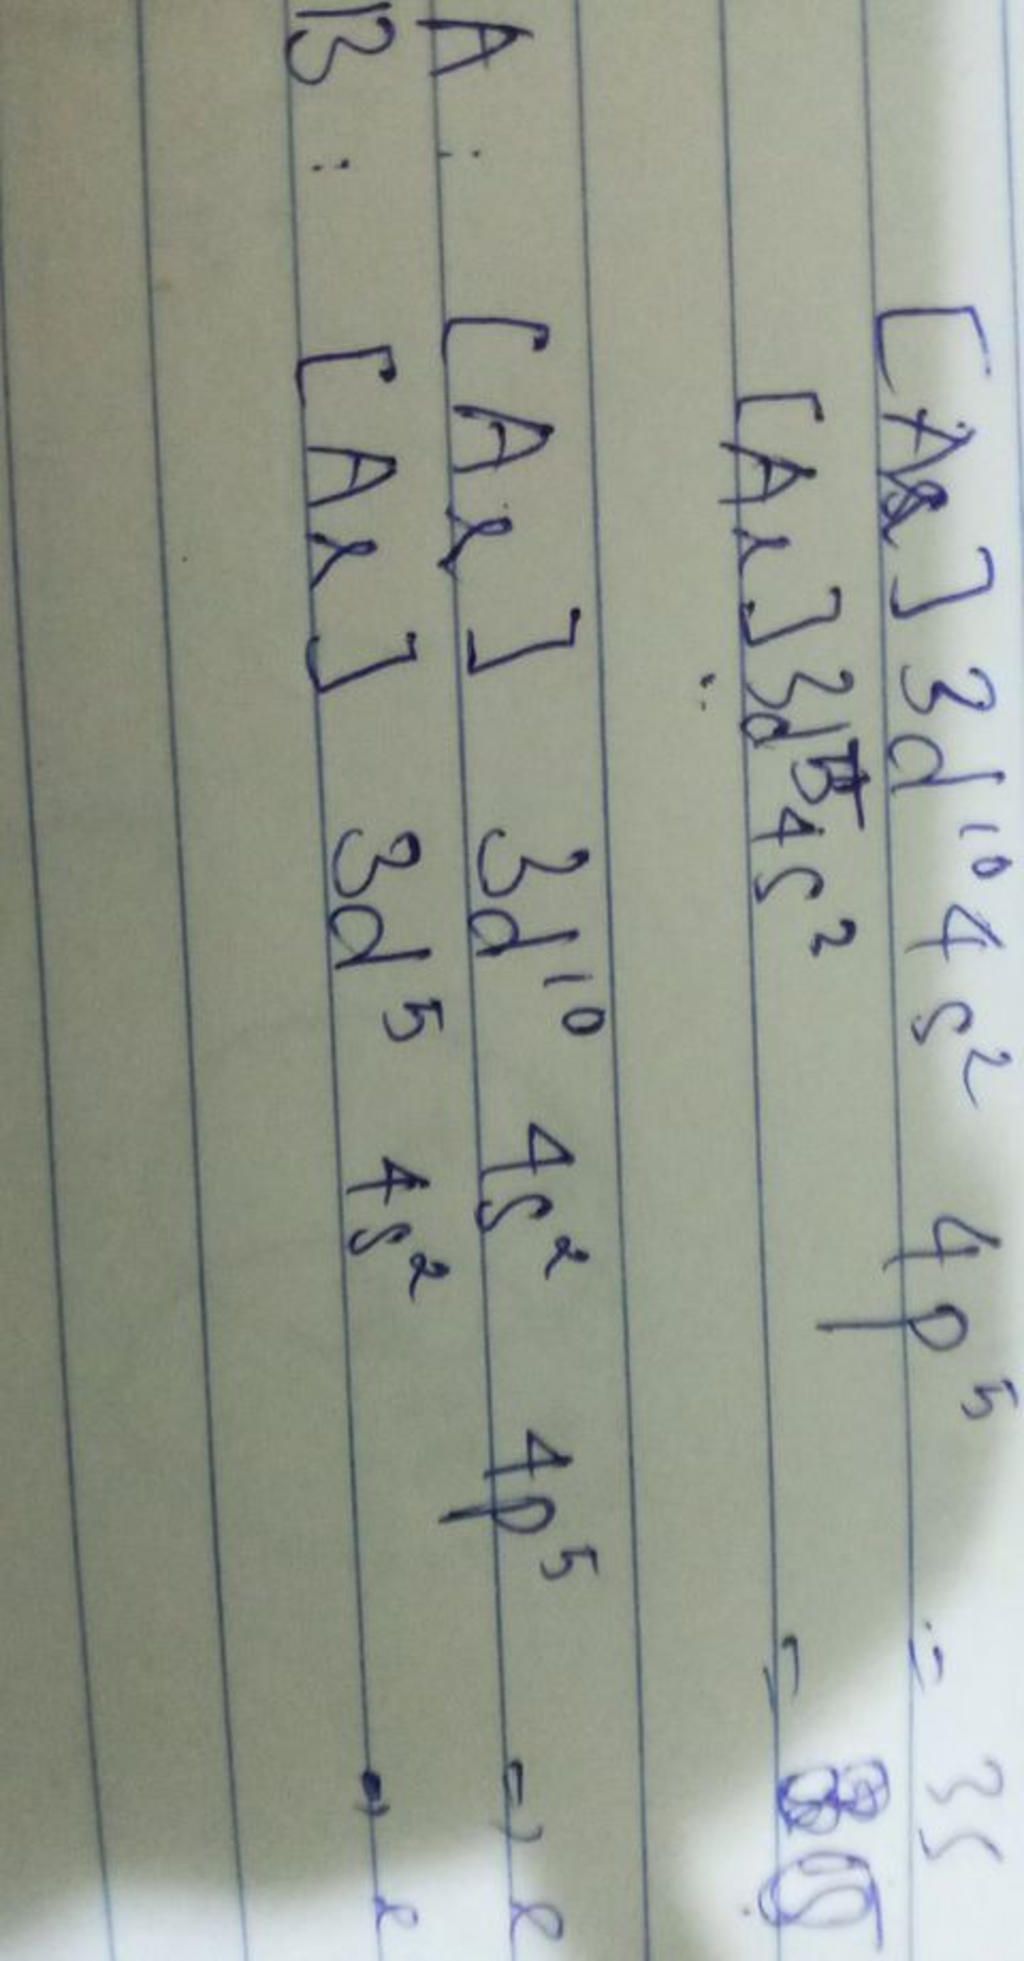 [Ar] 3d¹⁰ 4s² 4p⁵ = 35
[Ar] 3d⁵ 4s² =
A : [Ar] 3d¹⁰ 4s² 4p⁵
B : [Ar] 3d⁵ 4s²